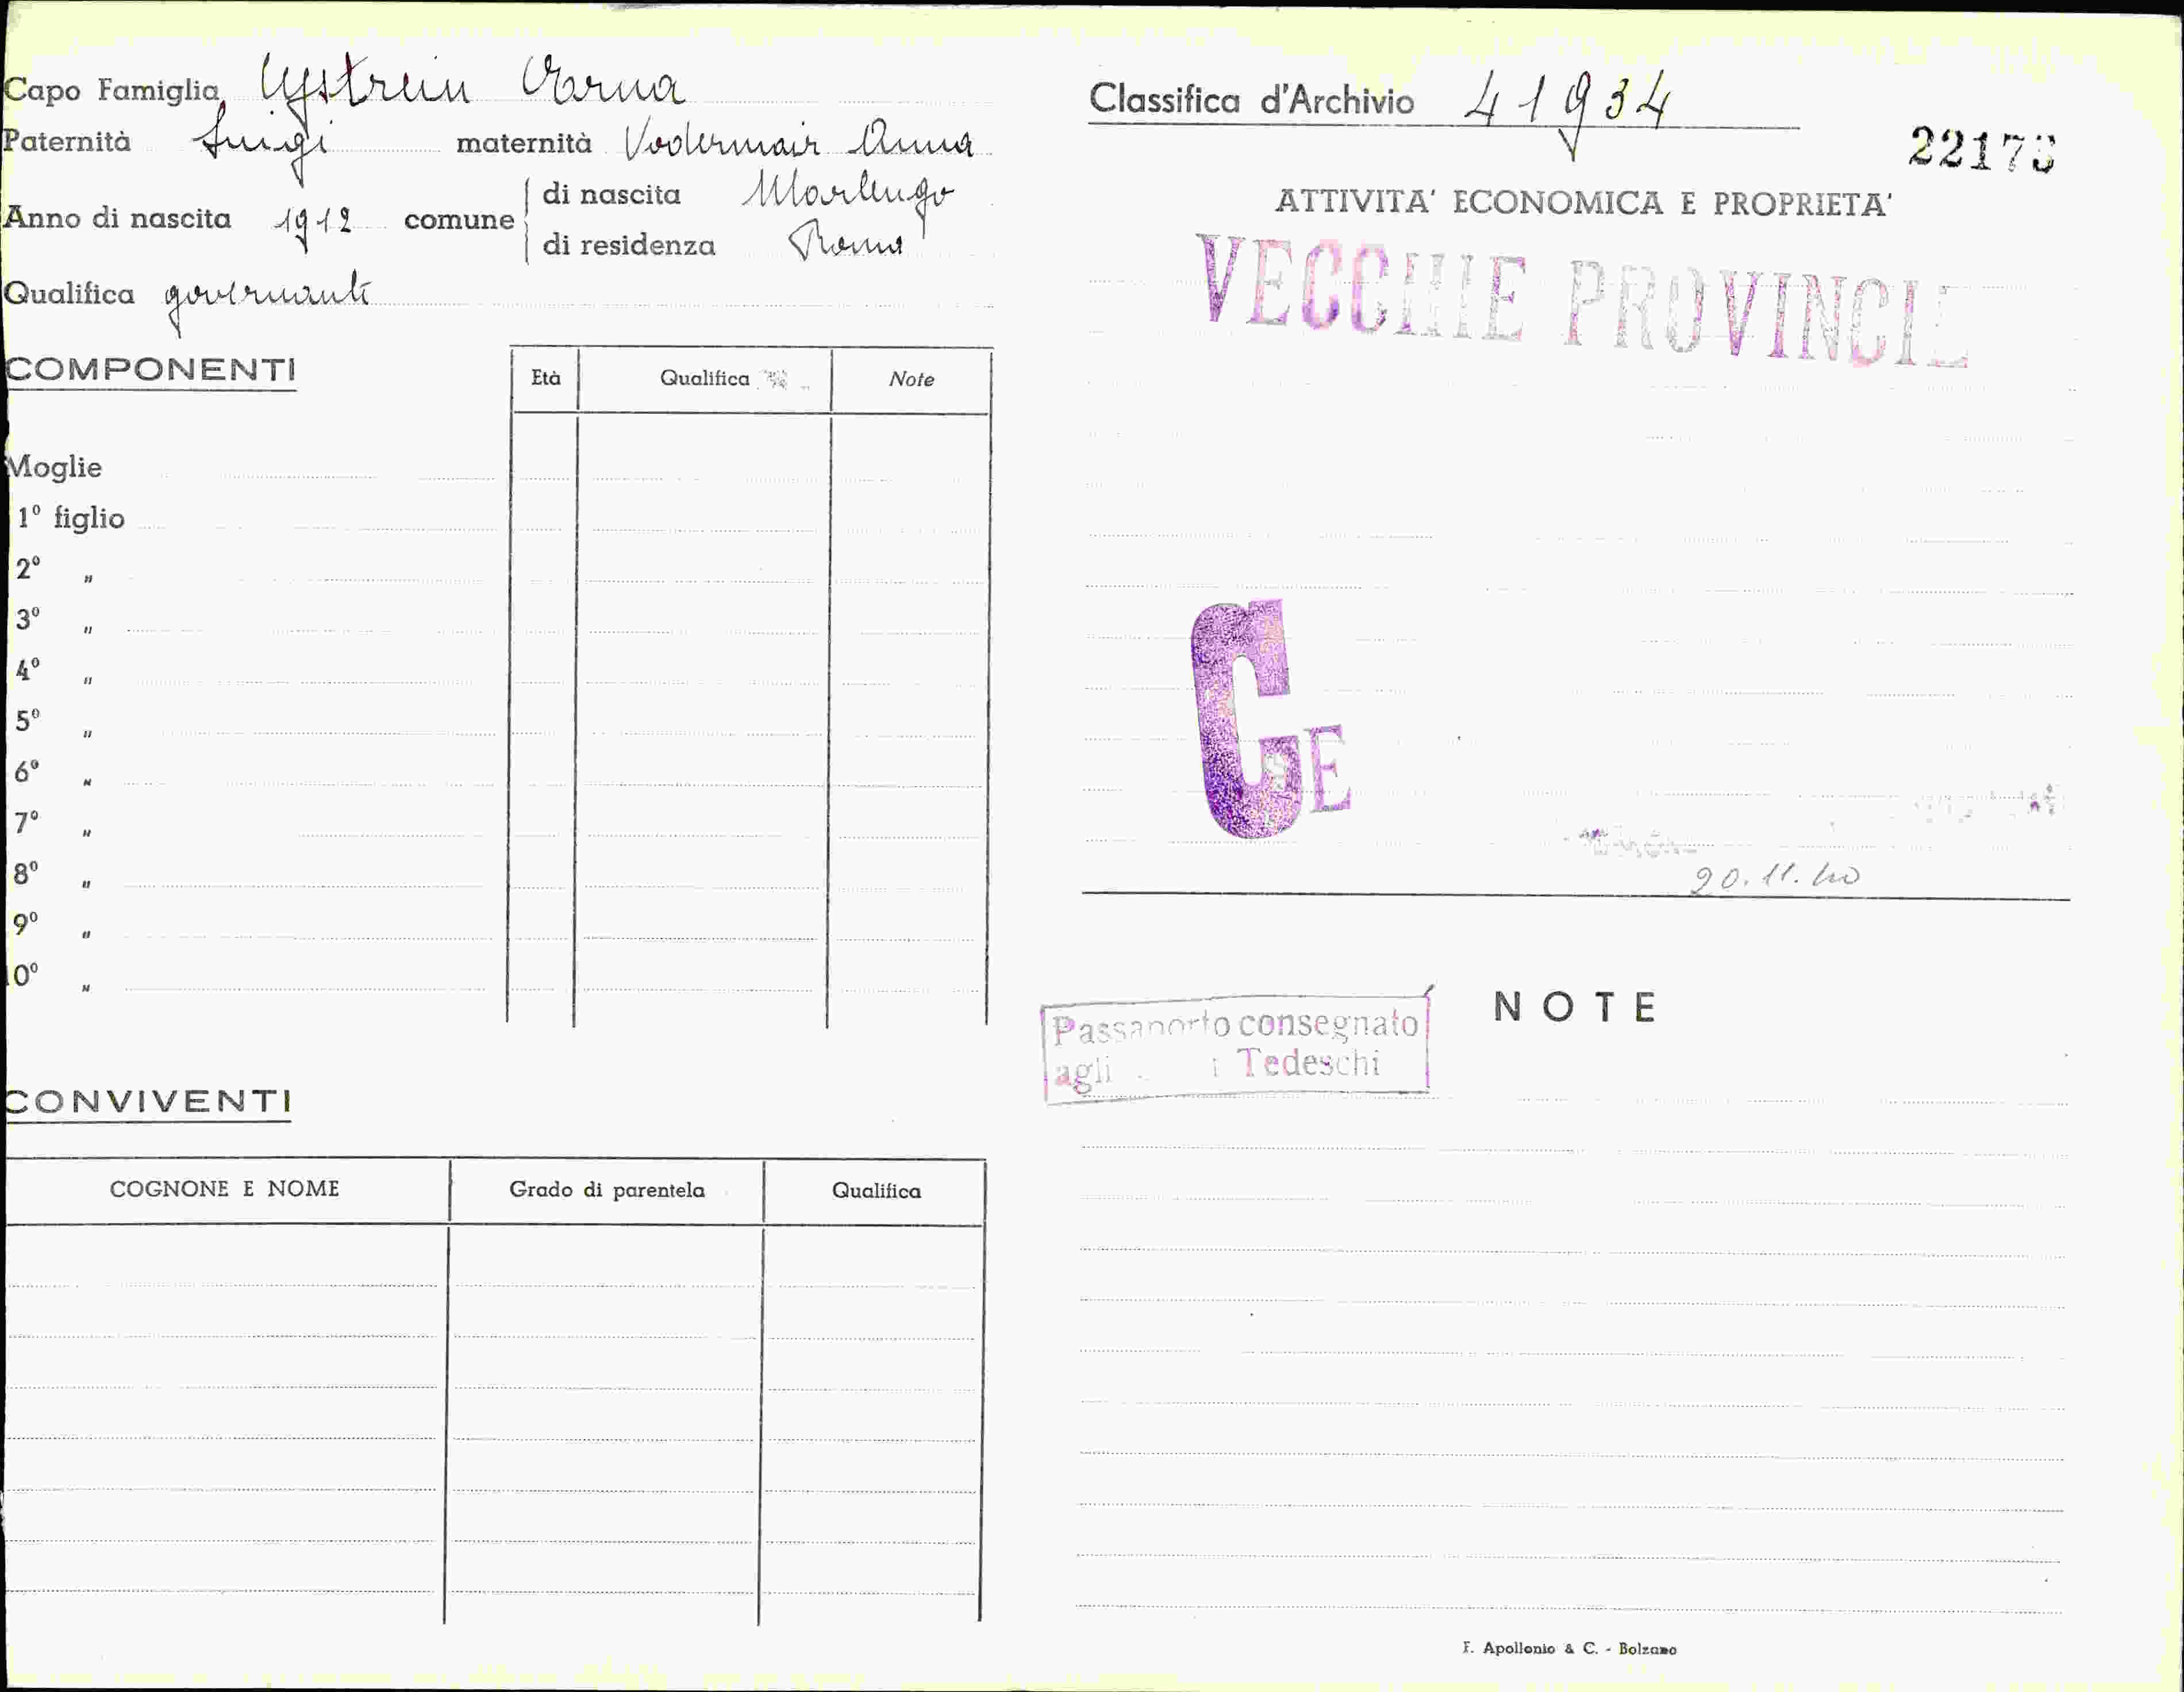 Capo Famiglia
Paternità Luigi maternità Vodermair Anna
Anno di nascita 1912 comune
di nascita Marlengo
di residenza Roma
Qualifica governante
COMPONENTI
Età Qualifica Note
Moglie
1º figlio
2º "
3º "
4º "
5º "
6º "
7º "
8º "
9º "
10º "
CONVIVENTI
COGNONE E NOME Grado di parentela Qualifica
Classifica d'Archivio 41934
ATTIVITA' ECONOMICA E PROPRIETA'
VECCHIE PROVINCIE
CE
20.11.40
NOTE
Passaporto consegnato
agli Tedeschi
F. Apollonio & C. - Bolzano